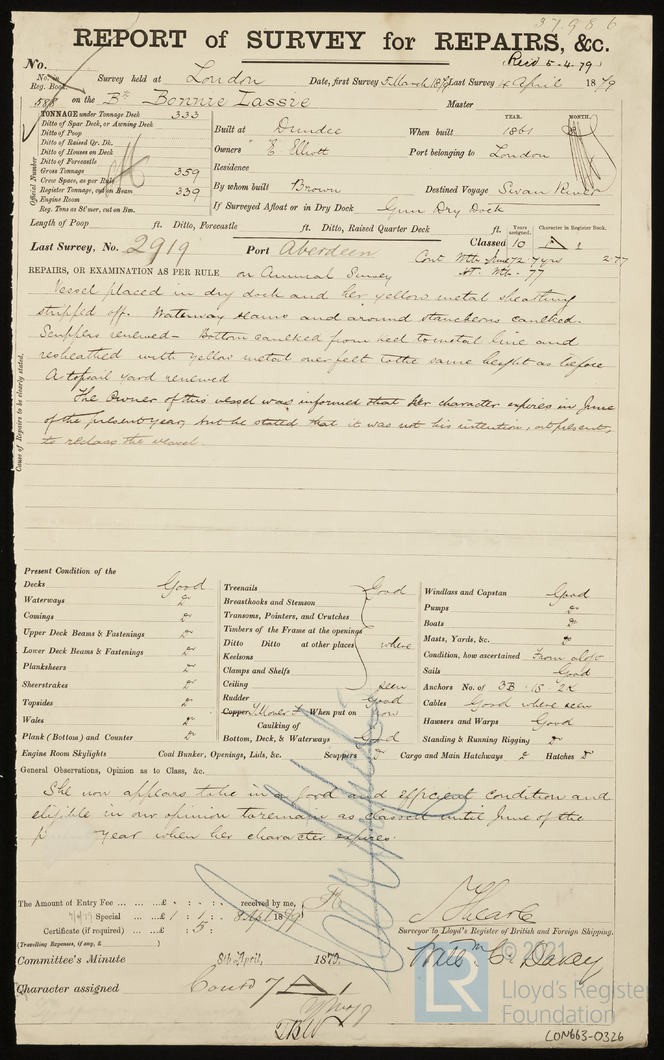 37986
REPORT of SURVEY for REPAIRS, &c.
Recd 5-4-79
No.
No. in Reg. Book. Survey held at London Date, first Survey 5 March 1879 Last Survey 4 April 1879
588 on the Bk Bonnie Lassie Master
TONNAGE under Tonnage Deck 333
Ditto of Spar Deck, or Awning Deck
Ditto of Poop
Ditto of Raised Qr. Dk.
Ditto of Houses on Deck
Ditto of Forecastle
Gross Tonnage 359
Crew Space, as per Rule
Register Tonnage, cut on Beam 339
Engine Room
Reg. Tons as St'mer, cut on Bm.
Official Number
Built at Dundee When built YEAR. 1861 MONTH.
Owners E Elliott Port belonging to London
Residence
By whom built Brown Destined Voyage Swan River
If Surveyed Afloat or in Dry Dock Gun Dry Dock
Length of Poop ft. Ditto, Forecastle ft. Ditto, Raised Quarter Deck ft.
Years assigned. Character in Register Book.
Classed 10 A 1
Last Survey, No. 2919 Port Aberdeen
Cont Mth June 72-7yrs 2-77
REPAIRS, OR EXAMINATION AS PER RULE on Annual Survey
Vessel placed in dry dock and her yellow metal sheathing
stripped off. Waterway seams and around stancheons caulked.
Scuppers renewed - Bottom caulked from keel to metal line and
resheathed with yellow metal over felt to the same height as before
A topsail yard renewed
The Owner of this vessel was informed that her character expires in June
of the present year, but he stated that it was not his intention, at present,
to reclass the vessel.
Cause of Repairs to be clearly stated.
Present Condition of the
Decks Good
Waterways Do
Comings Do
Upper Deck Beams & Fastenings Do
Lower Deck Beams & Fastenings Do
Planksheers Do
Sheerstrakes Do
Topsides Do
Wales Do
Plank (Bottom) and Counter Do
Treenails Good
Breasthooks and Stemson
Transoms, Pointers, and Crutches
Timbers of the Frame at the openings
Ditto Ditto at other places where
Keelsons
Clamps and Shelfs
Ceiling seen
Rudder Good
Copper When put on now
Caulking of
Bottom, Deck, & Waterways Good
Windlass and Capstan Good
Pumps Do
Boats Do
Masts, Yards, &c. Do
Condition, how ascertained From aloft
Sails Good
Anchors No. of 3B. 1S. 2K
Cables Good where seen
Hawsers and Warps Good
Standing & Running Rigging Do
Engine Room Skylights Coal Bunker, Openings, Lids, &c. Scuppers Do Cargo and Main Hatchways Do Hatches Do
General Observations, Opinion as to Class, &c.
She now appears to be in a good and efficient condition and
eligible in our opinion to remain as classed until June of the
p year when her character expires.
The Amount of Entry Fee ... ...£ : : received by me,
7/4/79 Special ... ...£ 1 : 1 : 8 Apl 1879
Certificate (if required) ... : 5 :
(Travelling Expenses, if any, £ )
Surveyor to Lloyd's Register of British and Foreign Shipping.
Committee's Minute 8th April, 1879.
Character assigned Contd 7 A 1
© 2021
LR
Lloyd's Register
Foundation
LON663-0326